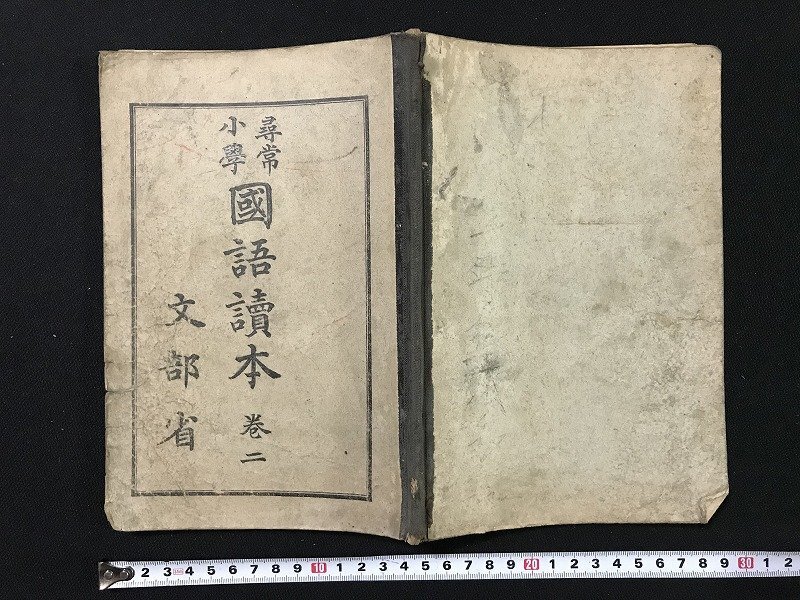 尋常
小學
國語讀本 卷二
文部省
2 3 4 5 6 7 8 9 10 1 2 3 4 5 6 7 8 9 20 1 2 3 4 5 6 7 8 9 30 1 2